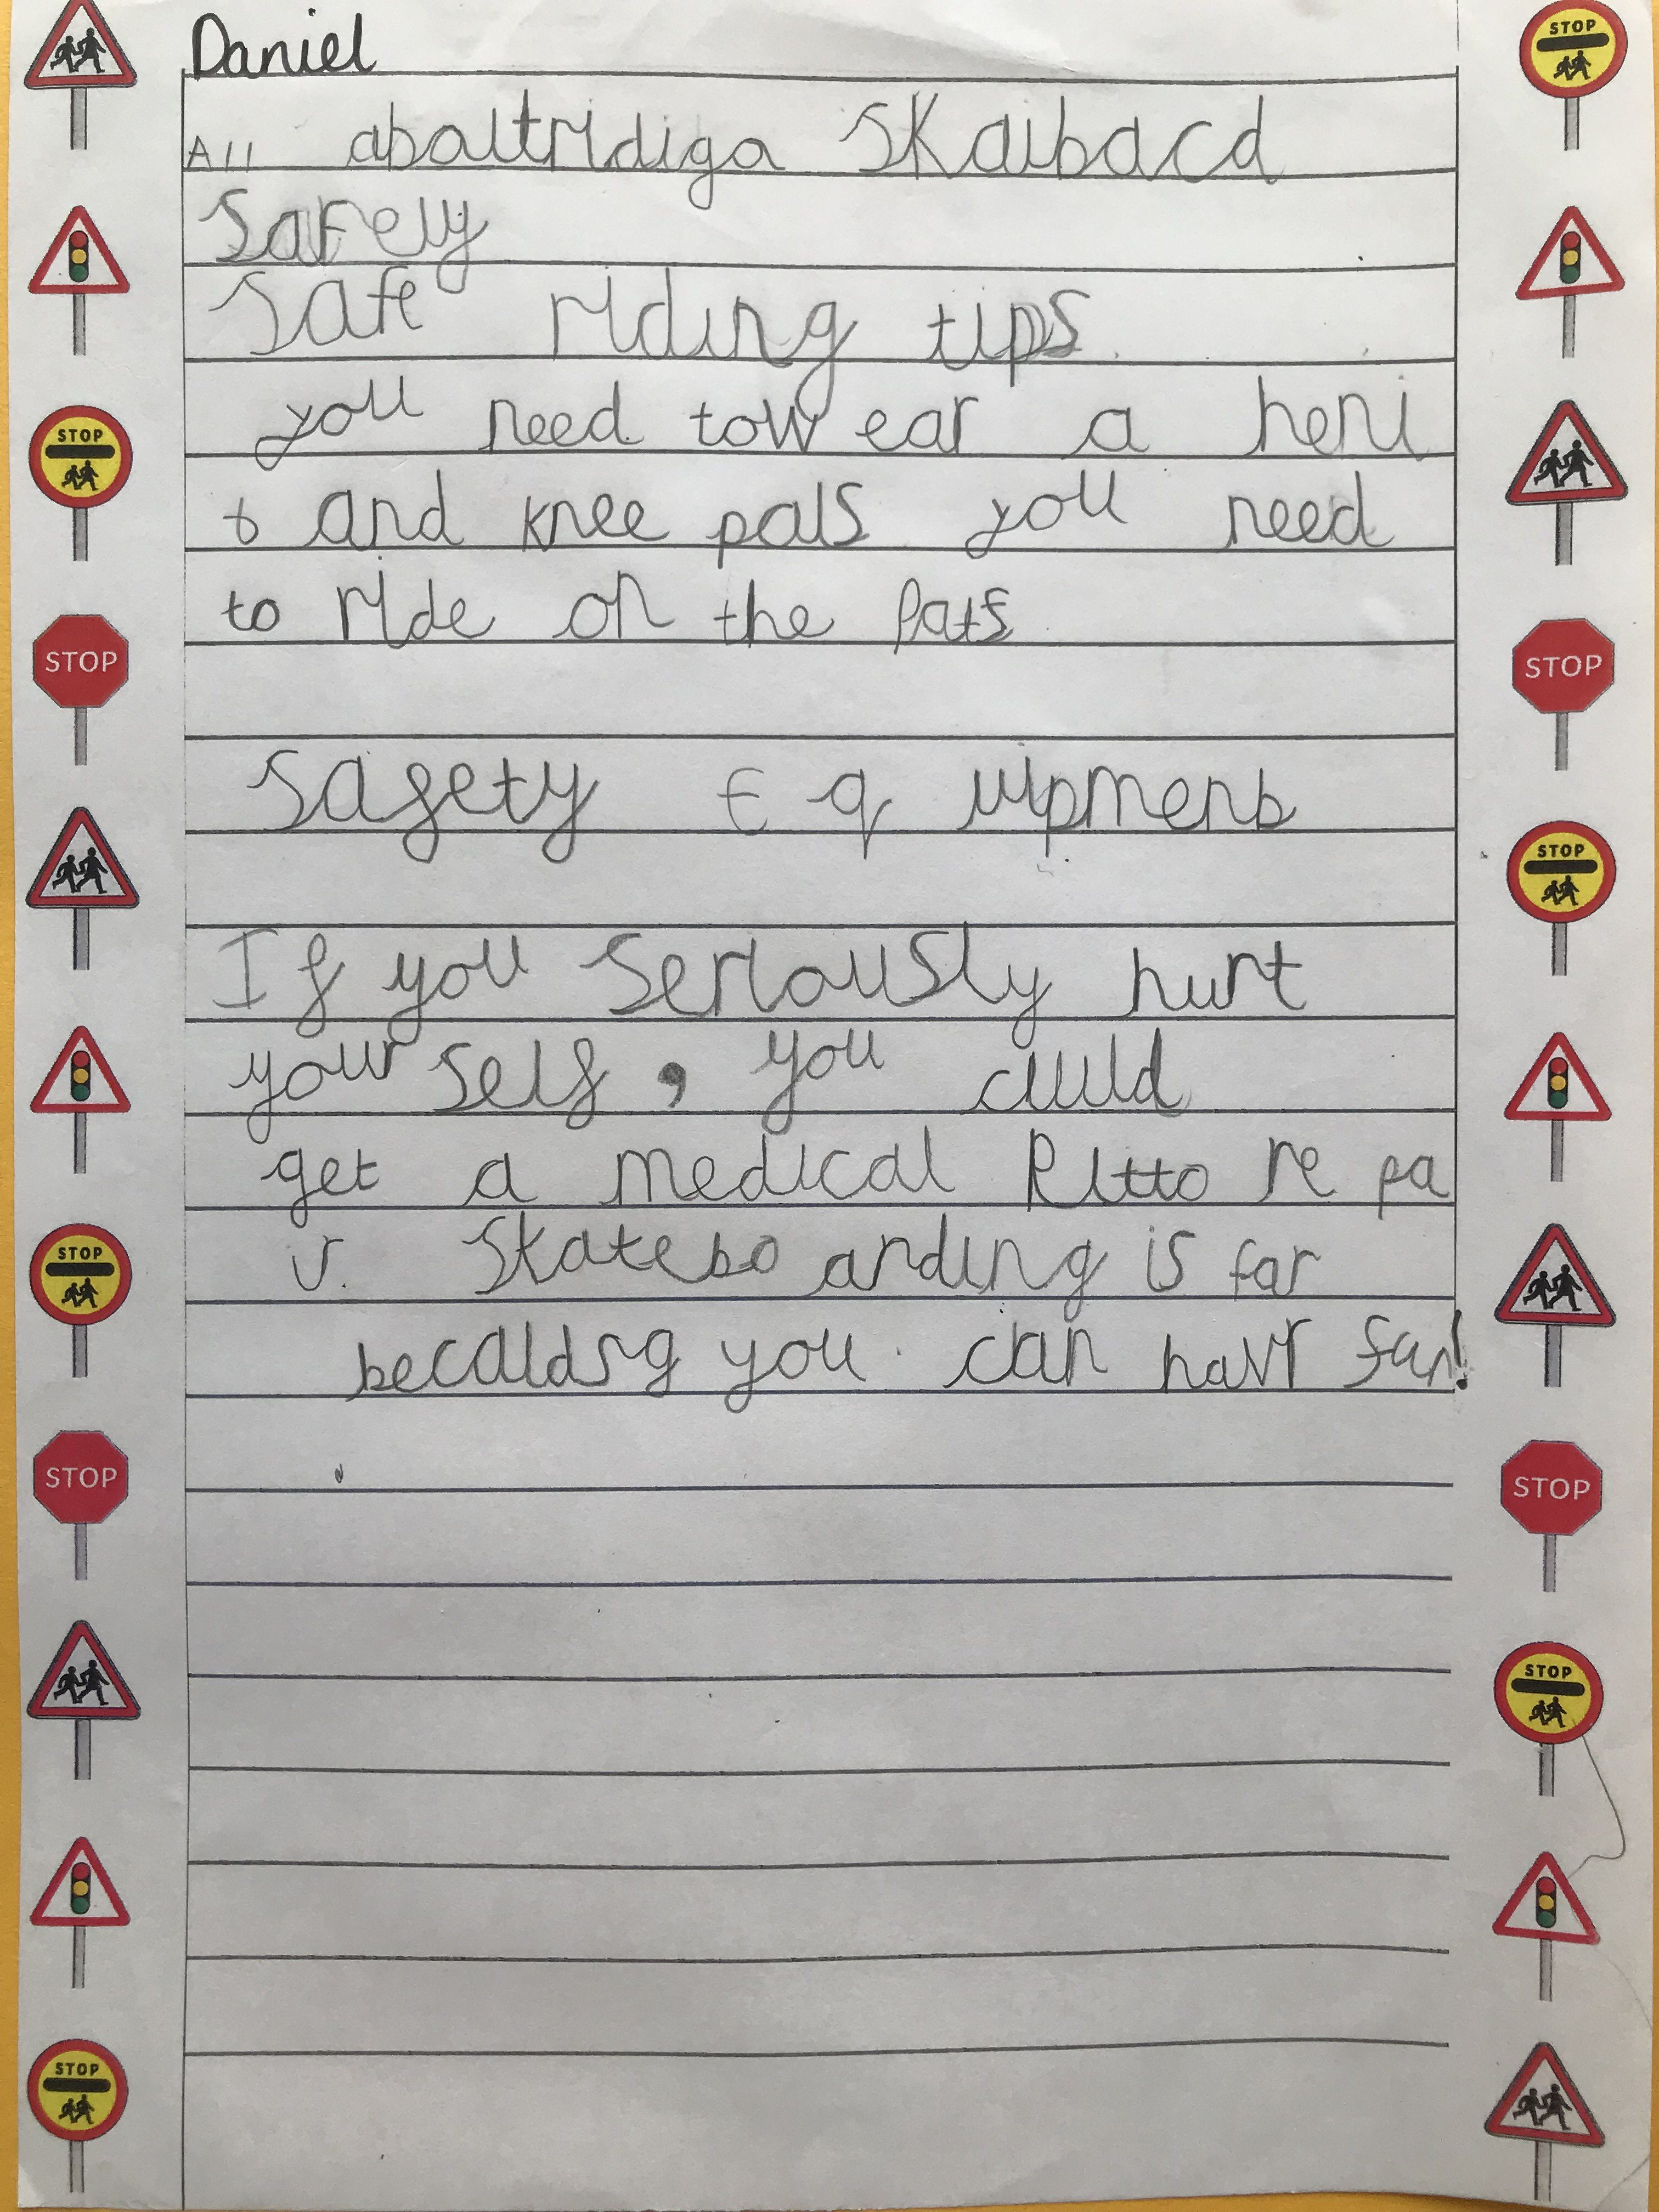 Daniel
All aboutridiga Skaibacd
Safely
Safe riding tips
you need tow ear a heni
t and knee pals you need
to ride on the Pats
Sagety Eq uipment
If you seriously hurt
yourself, you cuuld
get a medical Kitto re pa
ir. Skatebo arding is for
you can havr fun!
STOP
STOP
STOP
STOP
STOP
STOP
STOP
STOP
STOP
STOP
STOP